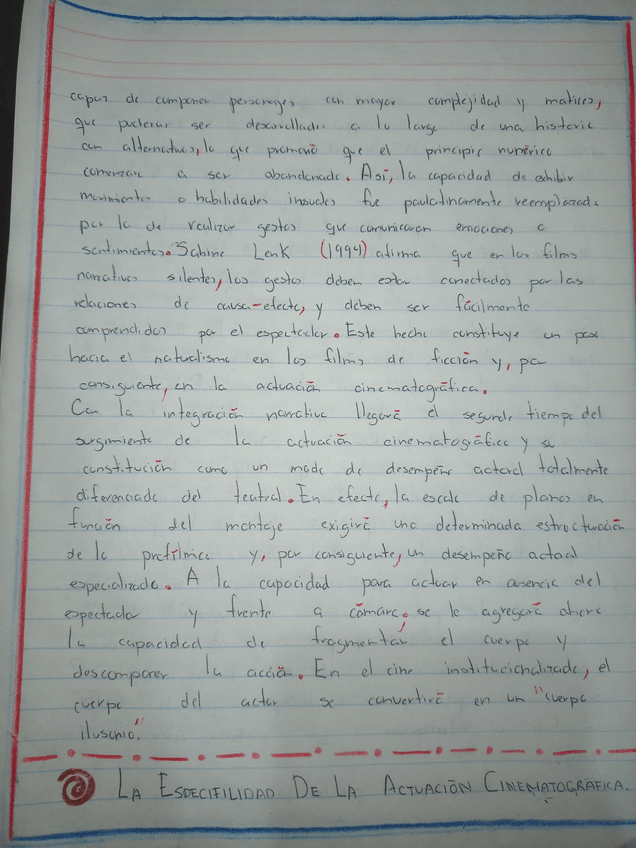 capaz de componer personajes con mayor complejidad y matices,
que pudieran ser desarrollados a lo largo de una historia
con alternativas, lo que promovió que el principio numérico
comenzara a ser abandonado. Así, la capacidad de exhibir
movimientos o habilidades insuales fue paulatinamente reemplazada
por la de realizar gestos que comunicaran emociones o
sentimientos. Sabine Lenk (1994) afirma que en los films
narrativos silentes, los gestos deben estar conectados por las
relaciones de causa-efecto, y deben ser fácilmente
comprendidos por el espectador. Este hecho constituye un paso
hacia el naturalismo en los films de ficción y, por
consiguiente, en la actuación cinematográfica.
Con la integración narrativa llegará el segundo tiempo del
surgimiento de la actuación cinematográfica y su
constitución como un modo de desempeño actoral totalmente
diferenciado del teatral. En efecto, la escala de planos en
función del montaje exigirá una determinada estructuración
de lo profílmico y, por consiguiente, un desempeño actoral
especializado. A la capacidad para actuar en ausencia del
espectador y frente a cámara, se le agregará ahora
la capacidad de fragmentar el cuerpo y
descomponer la acción. En el cine institucionalizado, el
cuerpo del actor se convertirá en un "cuerpo
ilusorio".
LA ESPECIFILIDAD DE LA ACTUACIÓN CINEMATOGRAFICA.